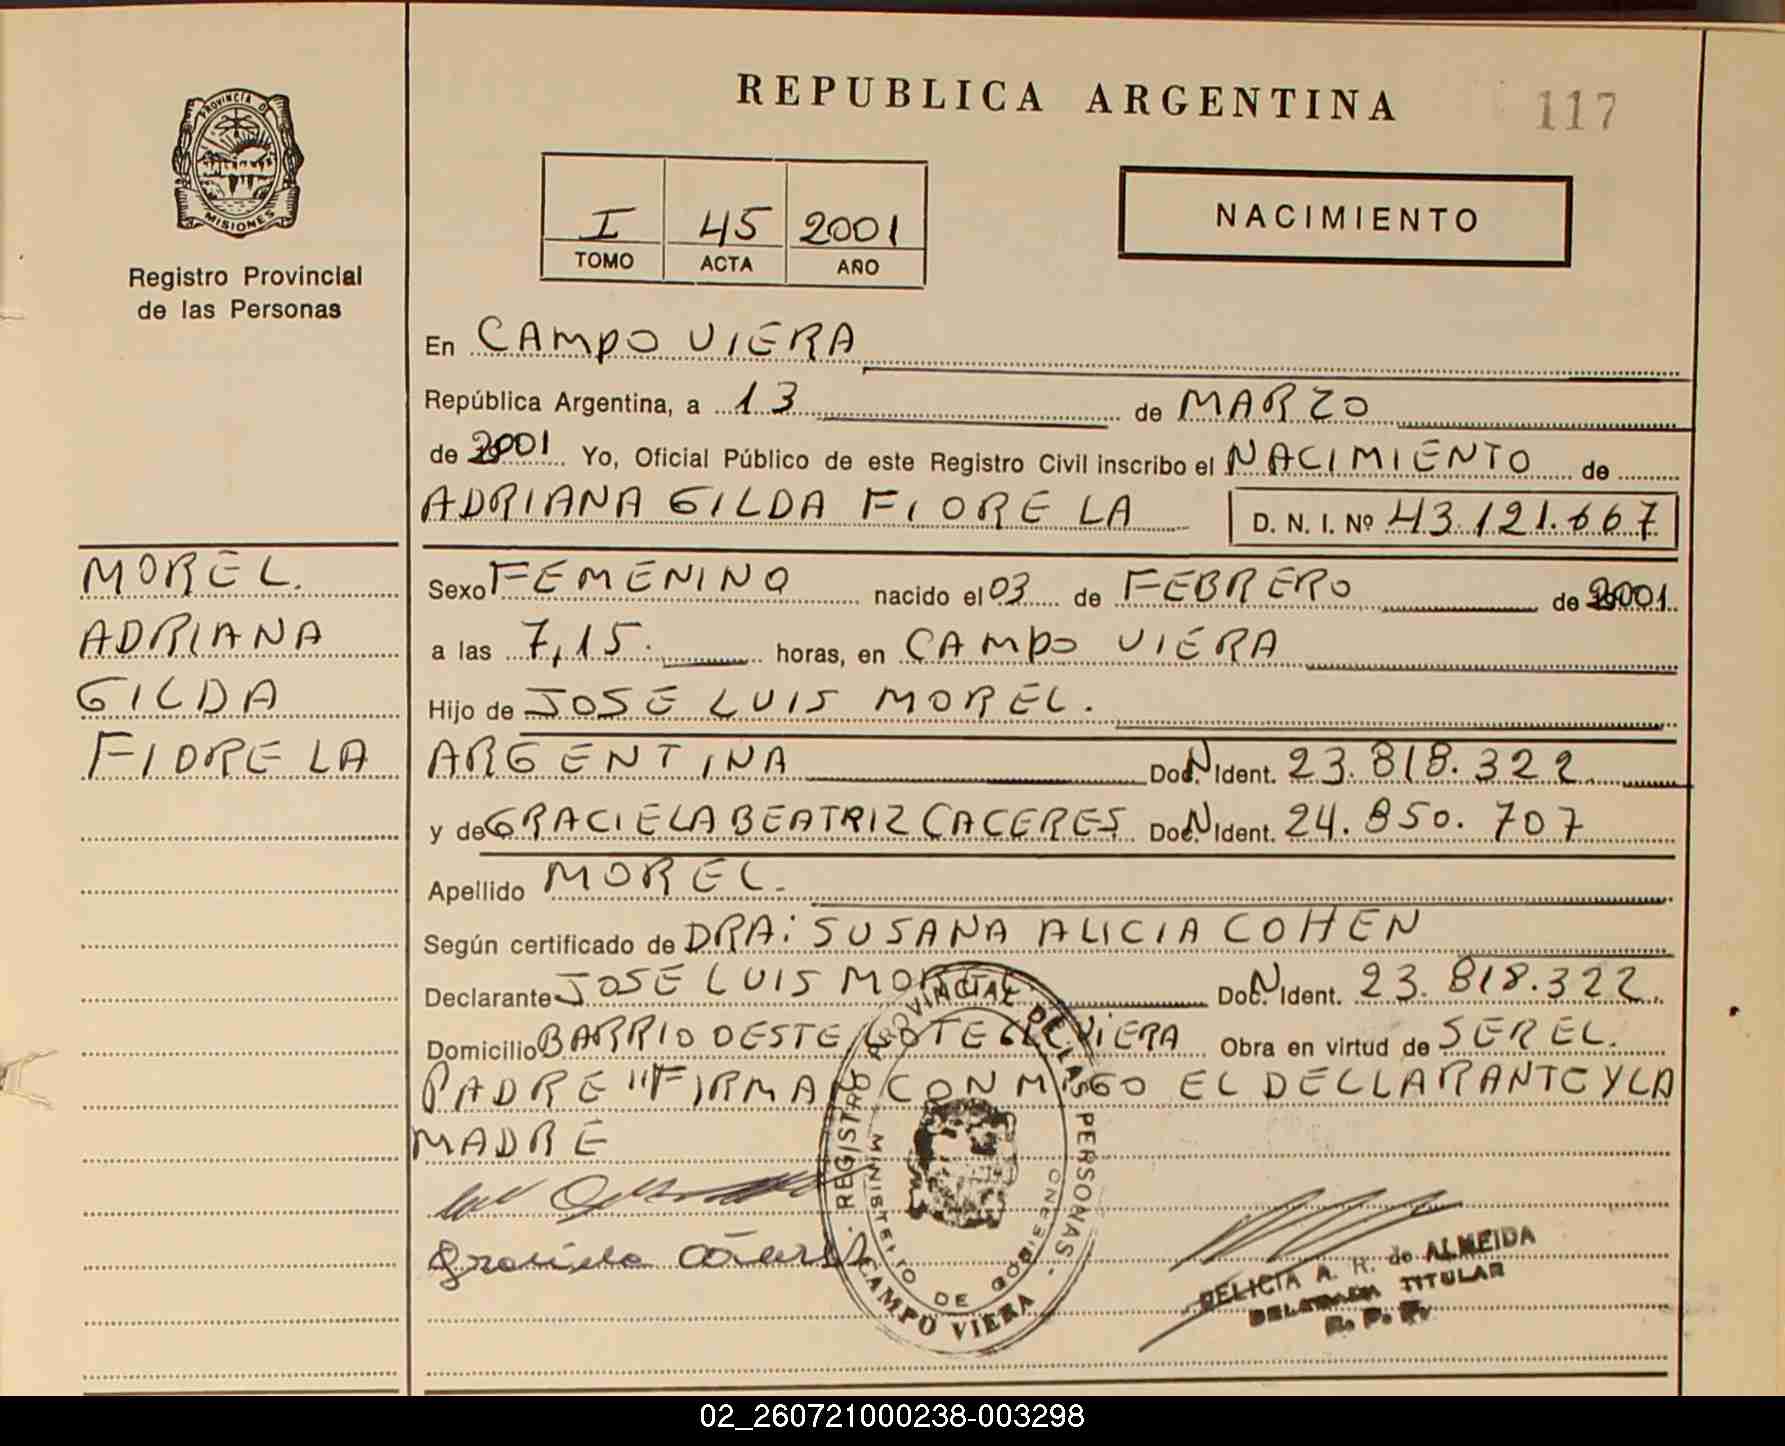 REPUBLICA ARGENTINA
117
PROVINCIA DE
MISIONES
Registro Provincial
de las Personas
I 45 2001
TOMO ACTA AÑO
NACIMIENTO
En CAMPO VIERA
República Argentina, a 13 de MARZO
de 2001 Yo, Oficial Público de este Registro Civil inscribo el NACIMIENTO de
ADRIANA GILDA FIORE LA D. N. I. Nº 43.121.667
MOREL.
ADRIANA
GILDA
FIORE LA
Sexo FEMENINO nacido el 03 de FEBRERO de 2001.
a las 7,15. horas, en CAMPO VIERA
Hijo de JOSE LUIS MOREL.
ARGENTINA Doc. N Ident. 23.818.322.
y de GRACIELA BEATRIZ CACERES Doc. N Ident. 24.850.707
Apellido MOREL.
Según certificado de DRA: SUSANA ALICIA COHEN
Declarante JOSE LUIS MOREL Doc. N Ident. 23.818.322.
Domicilio BARRIO OESTE VIERA Obra en virtud de SER EL.
PADRE "FIRMAN CONMIGO EL DECLARANTE Y LA
MADRE
REGISTRO PROVINCIAL DE LAS PERSONAS
MINISTERIO DE GOBIERNO
CAMPO VIERA
DELICIA A. R. de ALMEIDA
DELEGADA TITULAR
R. P. P.
02_260721000238-003298